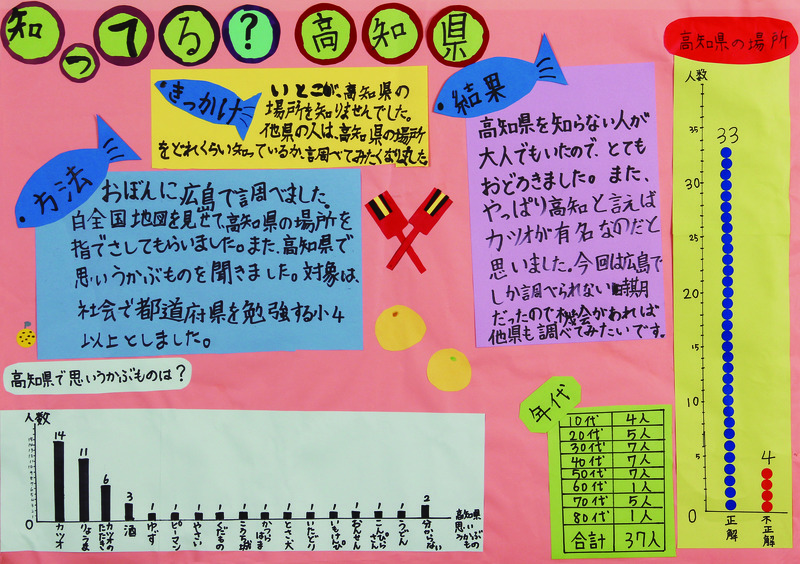 知ってる？高知県
きっかけ
いとこが、高知県の
場所を知りませんでした。
他県の人は、高知県の場所
をどれくらい知っているか、調べてみたくなりました。
方法
おぼんに広島で調べました。
白全国地図を見せて、高知県の場所を
指でさしてもらいました。また、高知県で
思いうかぶものを聞きました。対象は、
社会で都道府県を勉強する小4
以上としました。
結果
高知県を知らない人が
大人でもいたので、とても
おどろきました。また、
やっぱり高知と言えば
カツオが有名なのだと
思いました。今回は広島で
しか調べられない時期
だったので機会があれば
他県も調べてみたいです。
高知県の場所
人数
35
33
30
25
20
15
10
5
4
0
正解
不正解
高知県で思いうかぶものは？
人数
14
11
6
3
1
1
1
1
1
1
1
1
1
1
1
1
2
0
カツオ
りょうま
カツオのたたき
酒
ゆず
ピーマン
やさい
くだもの
こうち城
かつらはま
とさ犬
いたどり
いもけんぴ
おんせん
こんぴらさん
うどん
分からない
高知県
思いうかぶもの
年代
10代 4人
20代 5人
30代 7人
40代 7人
50代 7人
60代 1人
70代 5人
80代 1人
合計 37人